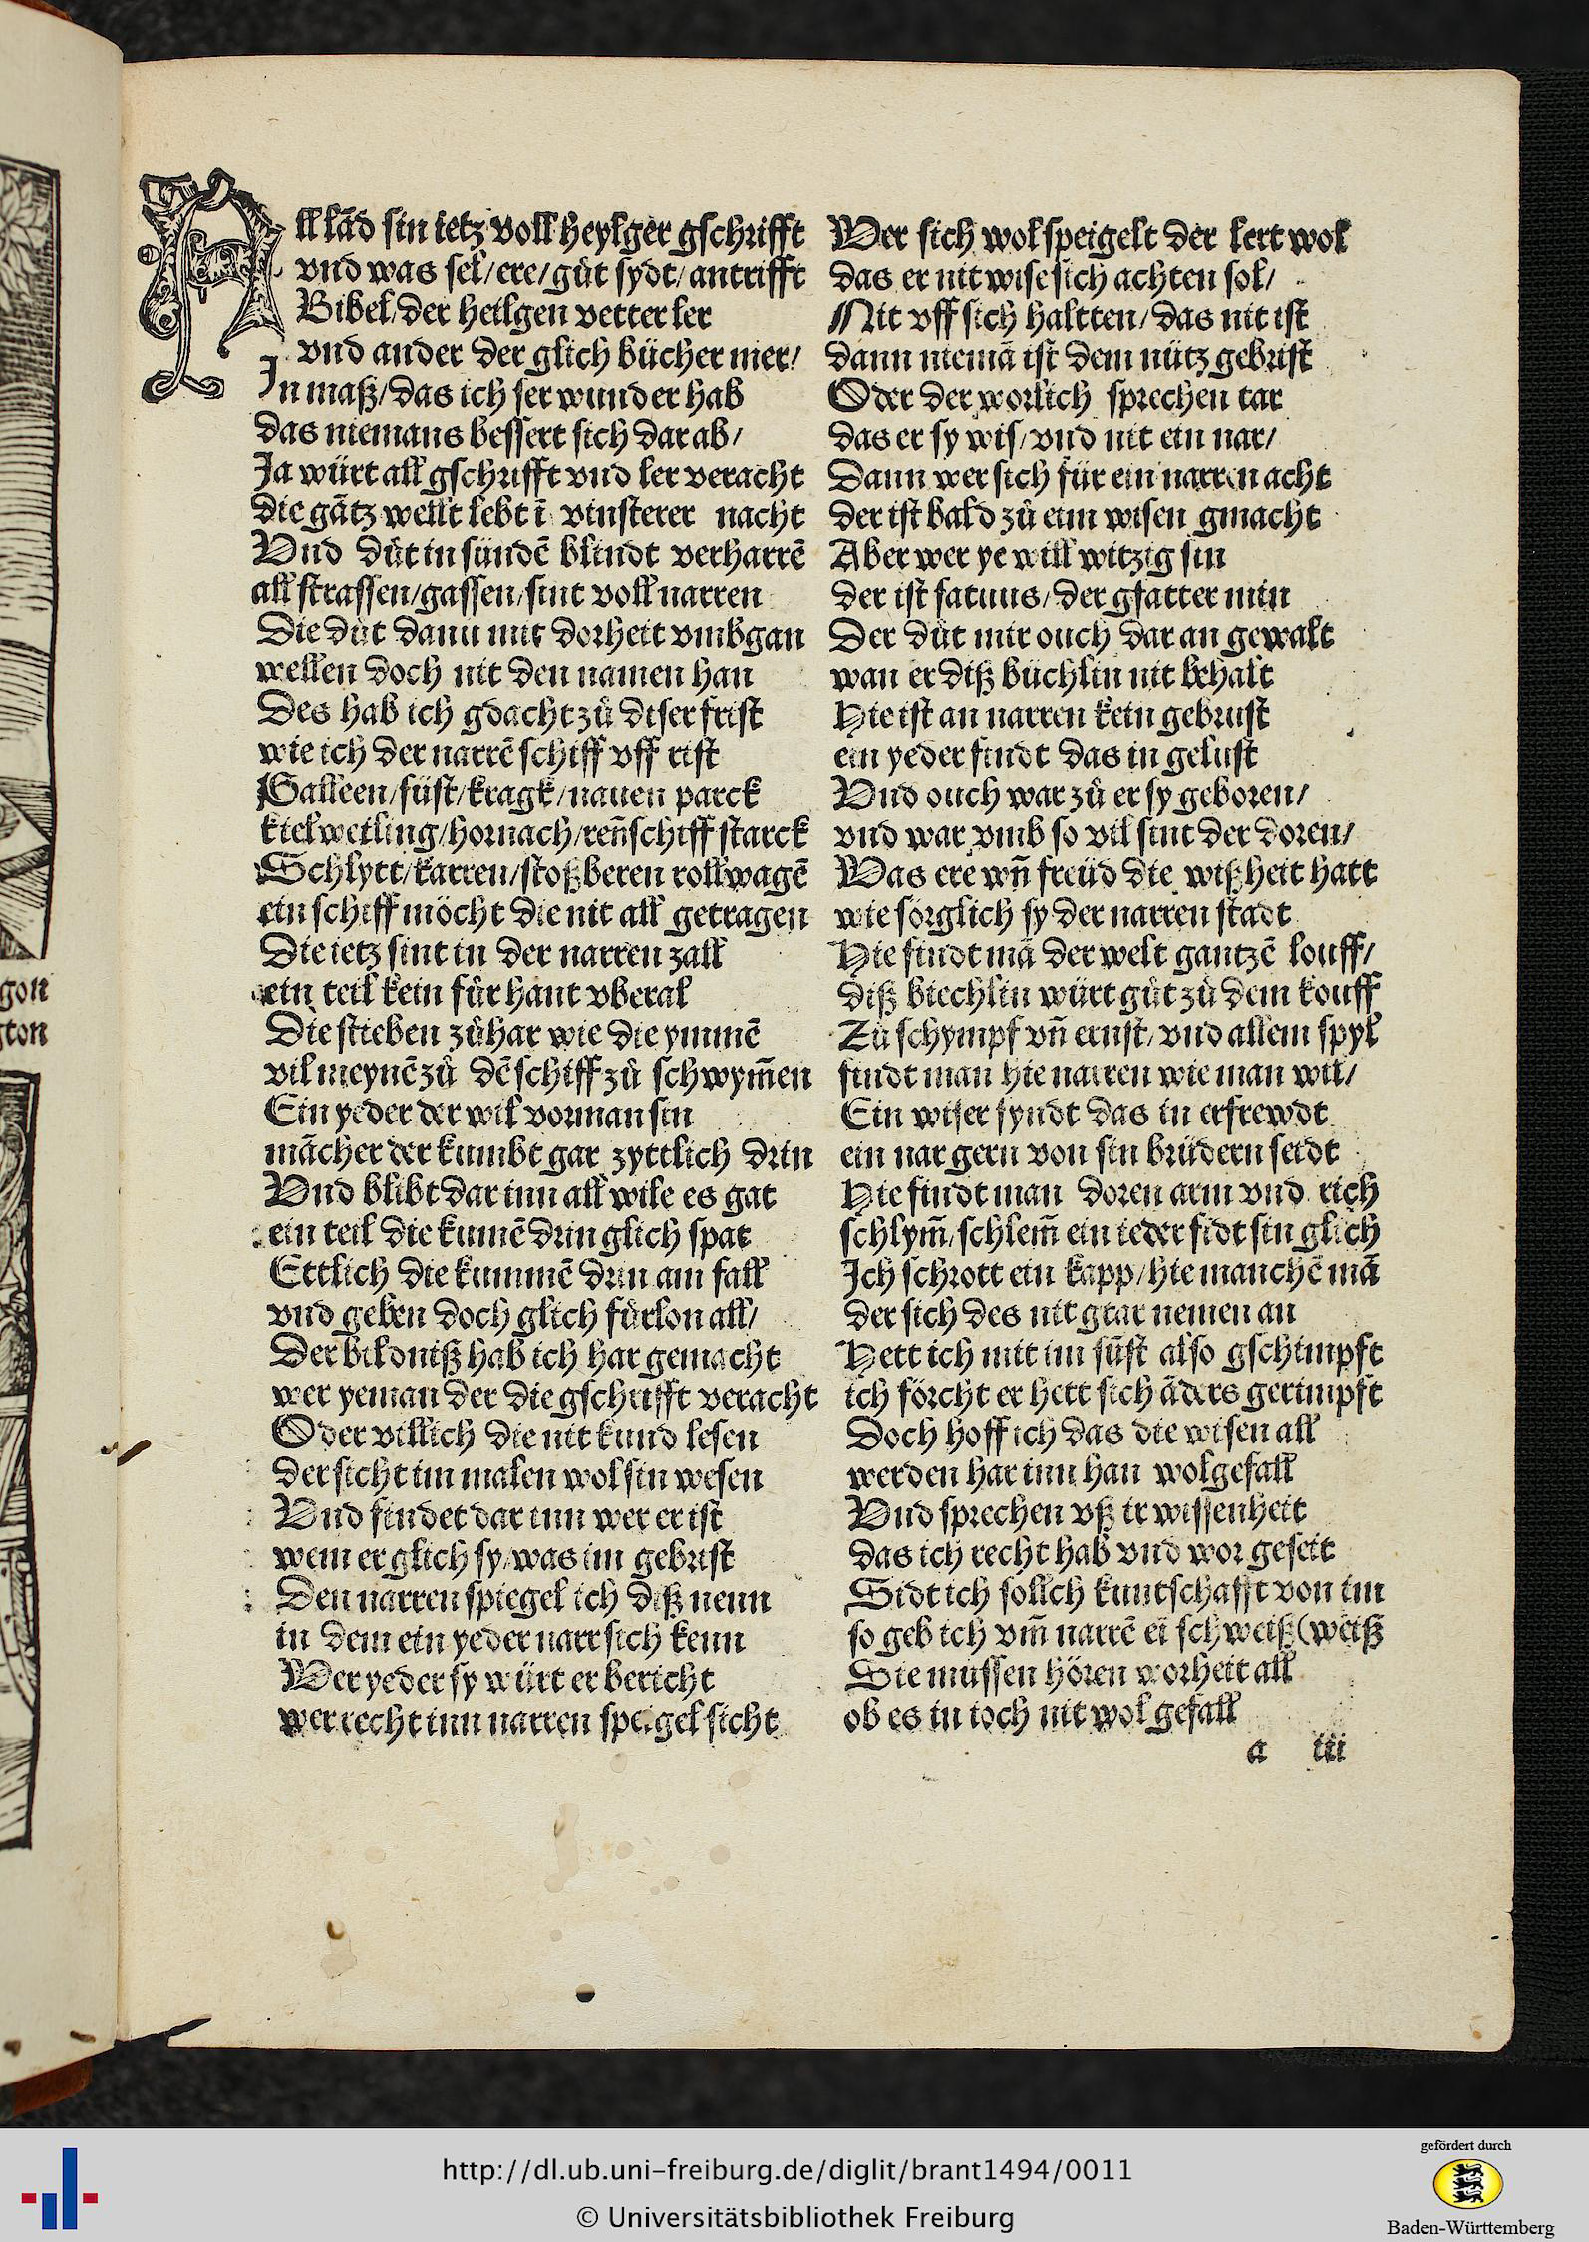 All lād sin ietz voll heylger gschrifft
vnd was sel/ere/gůt sydt/antrifft
Bibel/der heilgen vetter ler
vnd ander der glich bücher mer/
In maß/das ich ser wunder hab
das niemans bessert sich dar ab/
Ja würt all gschrifft vnd ler veracht
die gātz wellt lebt ī vinsterer nacht
Vnd důt in sündē blindt verharrē
all strassen/gassen/sint voll narren
Die důt dann mit dorheit vmbgan
wellen doch nit den namen han
Des hab ich gdacht zů diser frist
wie ich der narrē schiff vff rist
Galleen/füst/kragk/nauen parck
kiel weiling/hornach/reñschiff starck
Schlytt/karren/stoßberen rollwagē
ein schiff möcht die nit all getragen
Die ietz sint in der narren zall
ein teil kein fůr hant vberal
Die stieben zůhar wie die ymmē
vil meynē zů dē schiff zů schwym̄en
Ein yeder der wil vorman sin
mācher der kumbt gar zyttlich drin
Vnd blibt dar inn all wile es gat
ein teil die kumē drin glich spat
Ettlich die kummē drin am fall
vnd geben doch glich fürlon all/
Der bildniß hab ich har gemacht
wer yeman der die gschrifft veracht
Oder villich die nit kund lesen
der sicht im malen wol sin wesen
Vnd findet dar inn wer er ist
wem er glich sy/was im gebrist
Den narren spiegel ich diß nenn
in dem ein yeder narr sich kenn
Wer yeder sy würt er bericht
wer recht inn narren spiegel sicht
Wer sich wol speigelt der lert wol
das er nit wise sich achten sol/
Nit vff sich haltten/das nit ist
dann niemā ist dem nütz gebrist
Oder der worlich sprechen tar
das er sy wis/vnd nit ein nar/
Dann wer sich für ein narren acht
der ist bald zů eim wisen gmacht
Aber wer ye will witzig sin
der ist fatuus/der gfatter min
Der důt mir ouch dar an gewalt
wan er diß büchlin nit behalt
Hie ist an narren kein gebrust
ein yeder findt das in gelust
Vnd ouch war zů er sy geboren/
vnd war vmb so vil sint der doren/
Was ere wñ freüd die wißheit hatt
wie sörglich sy der narren stadt
Hie findt mā der welt gantzē louff/
diß biechlin würt gůt zů dem kouff
Zů schympf vñ ernst/vnd allem spyl
findt man hie narren wie man wil/
Ein wiser fyndt das in erfrewdt
ein nar gern von sin brüdern seidt
Hie findt man doren arm vnd rich
schlym̄/schlem̄ ein ieder fidt sin glich
Ich schrott ein kapp/hie manchē mā
der sich des nit gtar nemen an
Hett ich mit im süst also gschimpft
ich förcht er hett sich āders gerimpft
Doch hoff ich das die wisen all
werden har inn han wolgefall
Vnd sprechen vß ir wissenheit
das ich recht hab vnd wor geseit
Sidt ich sollch kuntschafft von im
so geb ich vm̄ narrē eī schweiß (weiß
Sie mussen hören worheit all
ob es in ioch nit wol gefall
a iii
gon
gton
http://dl.ub.uni-freiburg.de/diglit/brant1494/0011
© Universitätsbibliothek Freiburg
gefördert durch
Baden-Württemberg